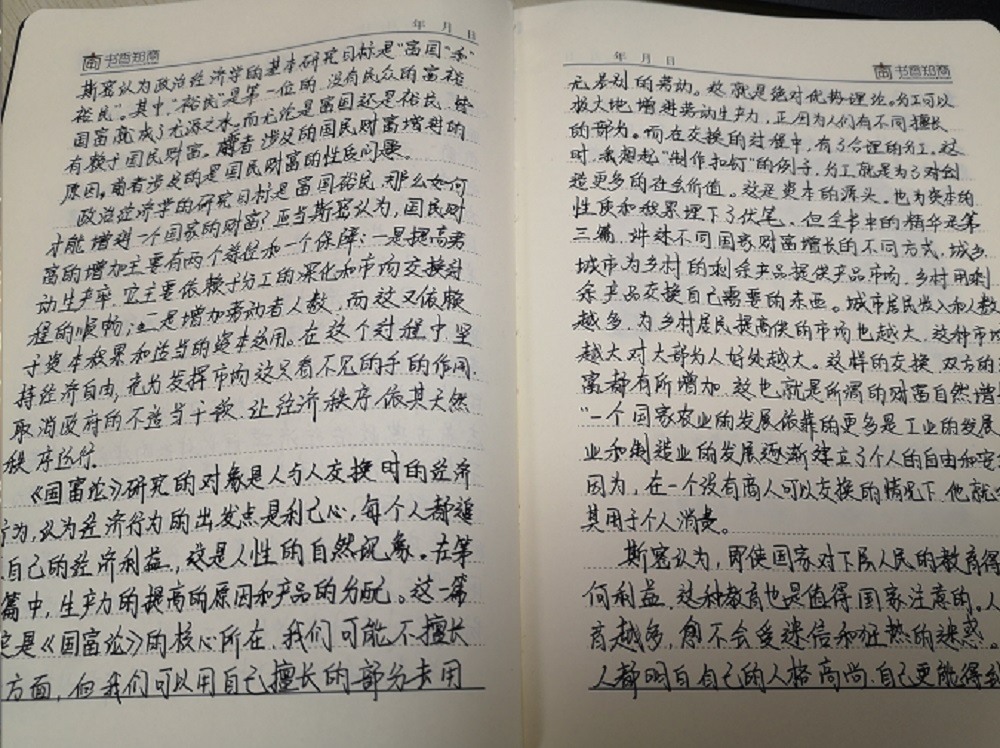 年 月 日
书香知商
斯密认为政治经济学的基本研究目标是“富国”和“
裕民”。其中“裕民”是第一位的,没有民众的富裕
国富就成了无源之水,而无论是富国还是裕民,皆
有赖于国民财富。前者涉及的国民财富增进的
原因,前者涉及的是国民财富的性质问题。
政治经济学的研究目标是富国裕民,那么如何
才能增进一个国家的财富?亚当斯密认为,国民财
富的增加主要有两个途径和一个保障:一是提高劳
动生产率,它主要依赖于分工的深化和市场交换过
程的顺畅;二是增加劳动者人数,而这又依赖
于资本积累和适当的资本运用。在这个过程中坚
持经济自由,充分发挥市场这只看不见的手的作用,
取消政府的不适当干预,让经济秩序依其天然
秩序运行。
《国富论》研究的对象是人与人交换时的经济
行为,认为经济行为的出发点是利己心,每个人都追
自己的经济利益,这是人性的自然现象。在第
篇中,生产力的提高的原因和产品的分配。这一篇
是《国富论》的核心所在,我们可能不擅长
方面,但我们可以用自己擅长的部分去用
年 月 日
书香知商
无差别的劳动。这就是绝对优势理论。分工可以
极大地增进劳动生产力,正因为人们有不同擅长
的部分。而在交换的过程中,有了合理的分工。这
时,我想起“制作扣钉”的例子,分工就是为了对创
造更多的社会价值。这是资本的源头,也为资本的
性质和积累埋下了伏笔。但全书中的精华是第
三篇,讲述不同国家财富增长的不同方式,城乡,
城市为乡村的剩余产品提供产品市场,乡村用剩
余产品交换自己需要的东西。城市居民收入和人数
越多,为乡村居民提高供的市场也越大,这种市场
越大对大部分人好处越大。这样的交换,双方的
富都有所增加,这也就是所谓的财富自然增
“一个国家农业的发展依靠的更多是工业的发展
业和制造业的发展逐渐建立了个人的自由和安
因为,在一个没有商人可以交换的情况下,他就
其用于个人消费。
斯密认为,即使国家对下层人民的教育得
何利益,这种教育也是值得国家注意的。人
育越多,愈不会受迷信和狂热的迷惑。
人都明白自己的人格高尚,自己更能得